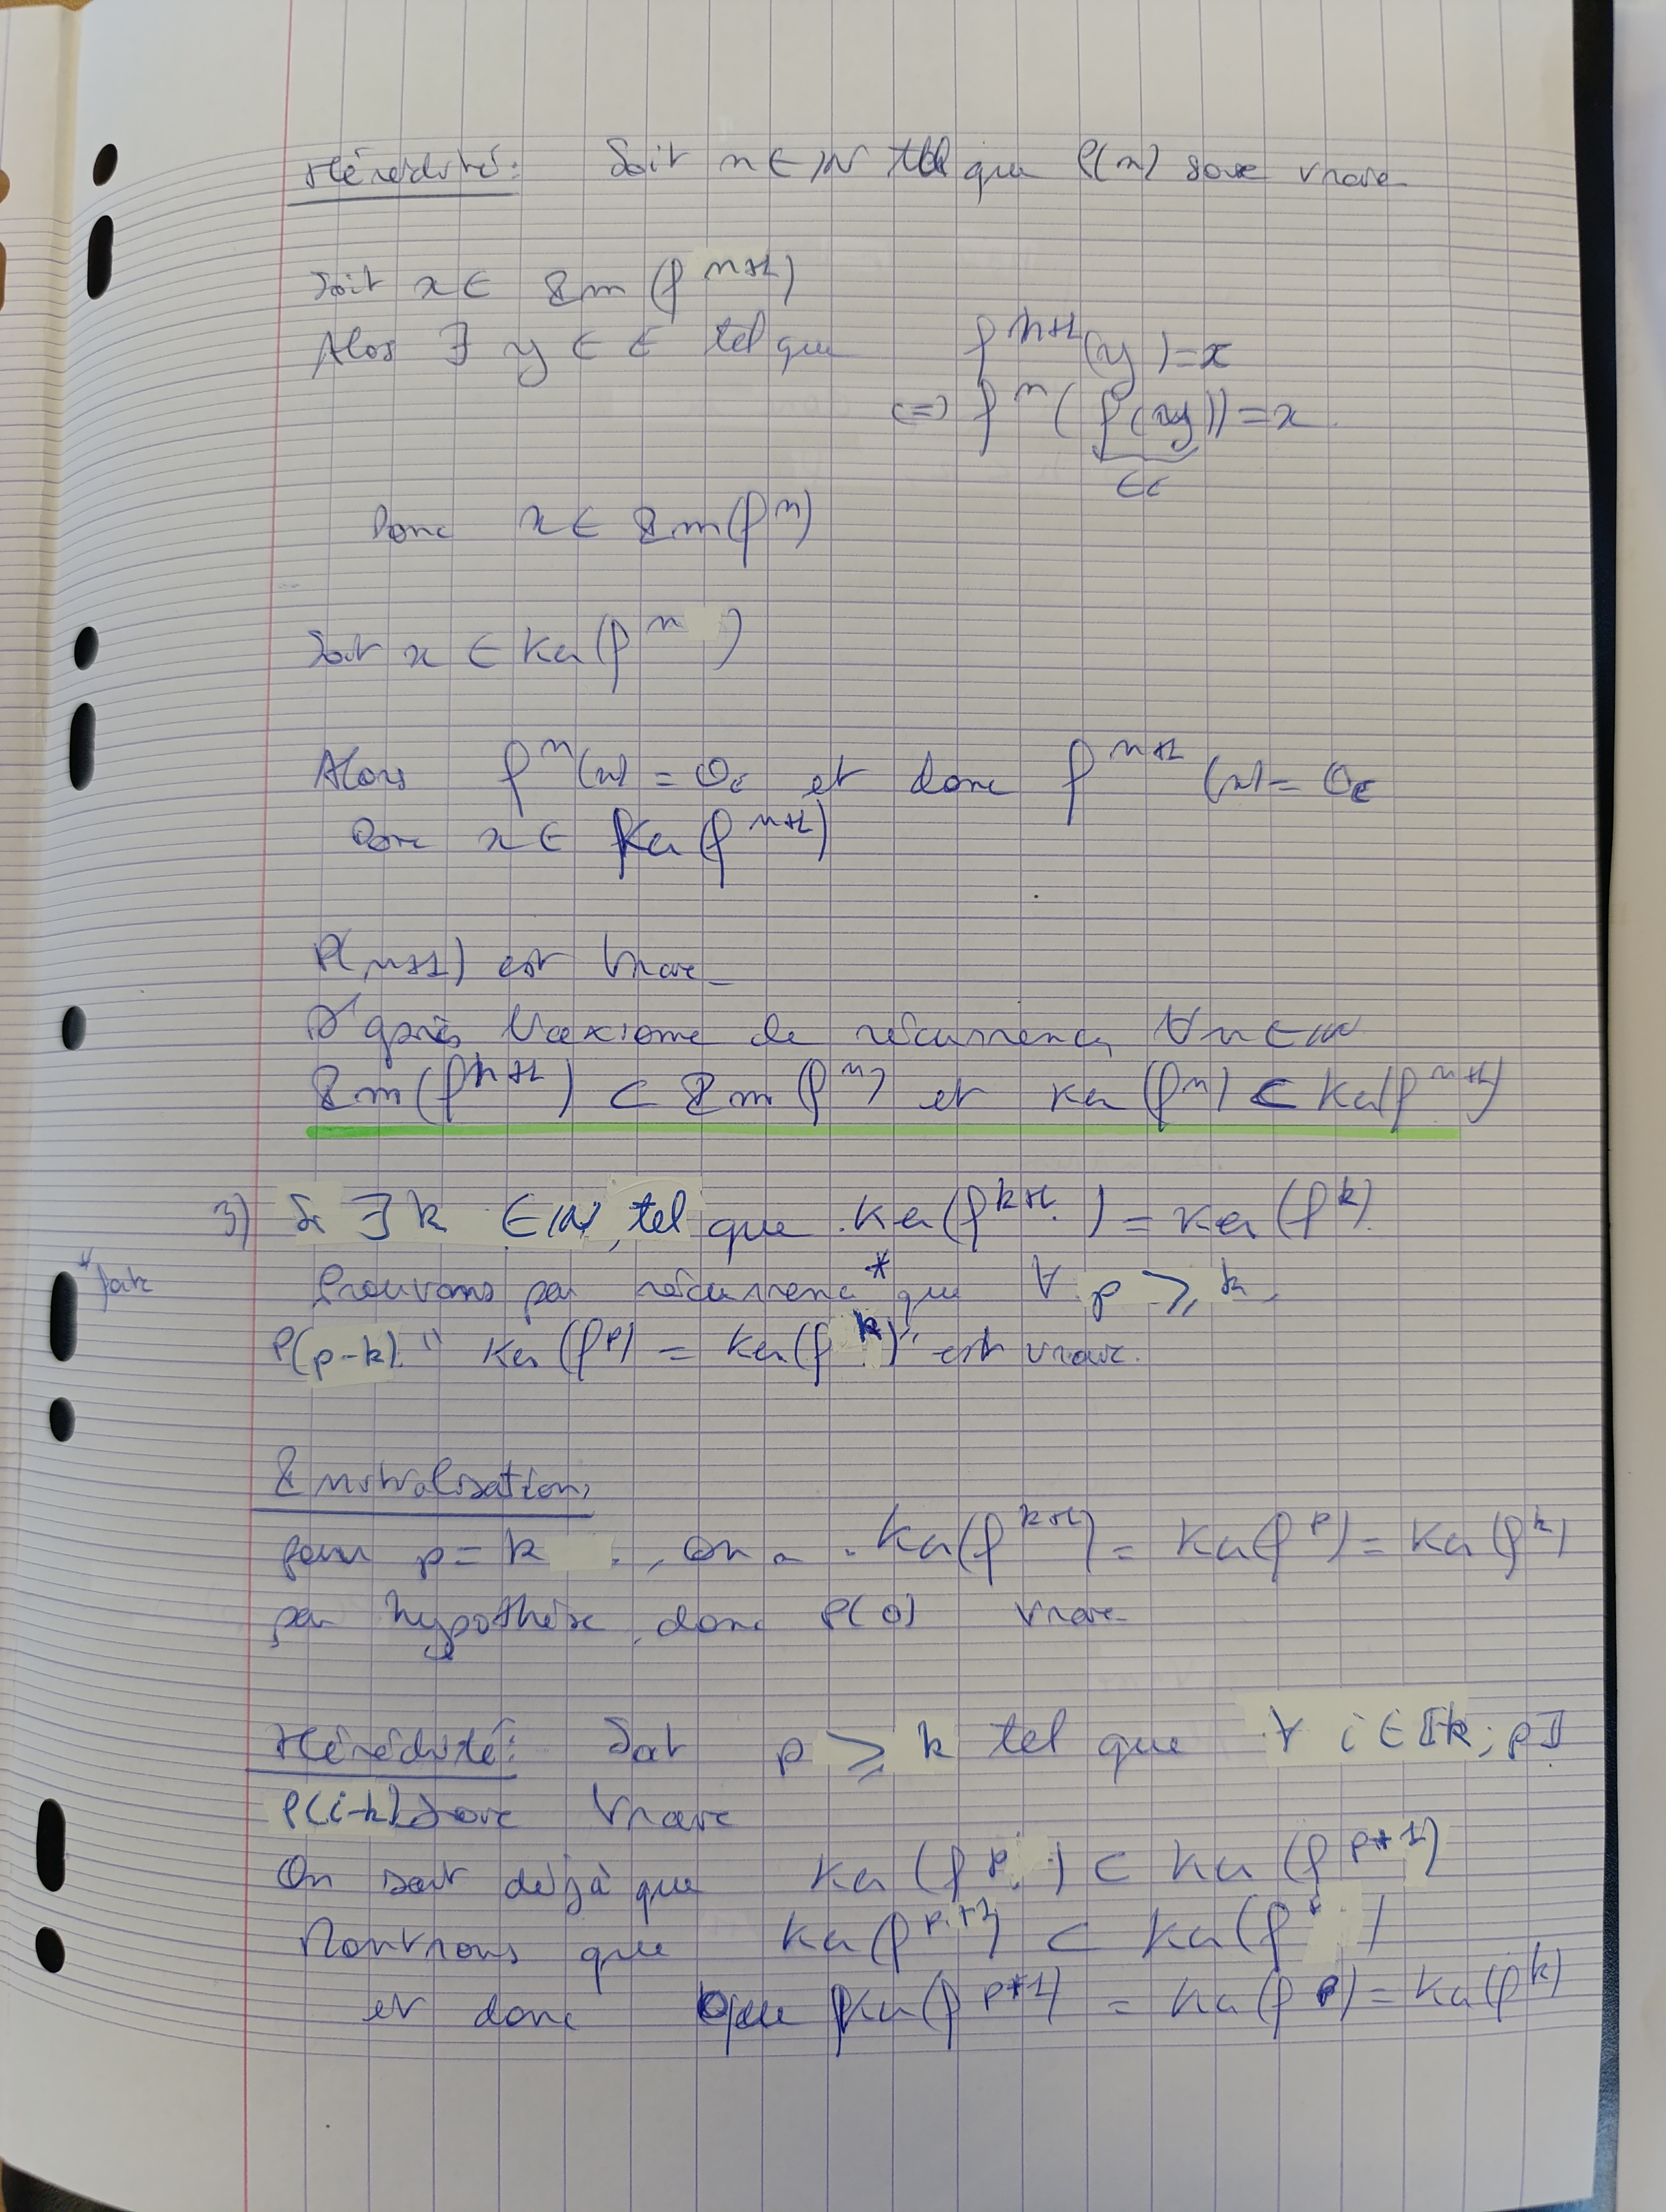 Hérédité : Soit n ∈ ℕ tel que P(n) soit vraie
Soit x ∈ Im (f^{n+1})
Alors ∃ y ∈ E tel que f^{n+1}(y) = x
(=) f^n (f(y)) = x
∈E
Donc x ∈ Im(f^n)
Soit x ∈ Ker(f^n)
Alors f^n(x) = 0_E et donc f^{n+1}(x) = 0_E
Donc x ∈ Ker(f^{n+1})
P(n+1) est vraie
D'après l'axiome de récurrence, ∀n ∈ ℕ
Im(f^{n+1}) ⊂ Im(f^n) et Ker(f^n) ⊂ Ker(f^{n+1})
3) Si ∃ k ∈ ℕ, tel que Ker(f^{k+1}) = Ker(f^k).
* forte
Prouvons par récurrence* que ∀ p ⩾ k,
P(p-k) : " Ker(f^p) = Ker(f^k)" est vraie.
Initialisation,
pour p = k, on a Ker(f^{k+1}) = Ker(f^p) = Ker(f^k)
par hypothèse, donc P(0) vraie
Hérédité : Soit p ⩾ k tel que ∀ i ∈ ⟦k ; p⟧
P(i-k) soit vraie
On sait déjà que Ker(f^p) ⊂ Ker(f^{p+1})
Montrons que Ker(f^{p+1}) ⊂ Ker(f
et donc que Ker(f^{p+1}) = Ker(f^p) = Ker(f^k)